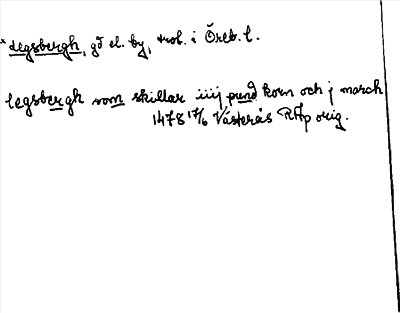 *Legsbergh, gd el. by, trol. i Öreb. l.
legsbergh som skillar iiij pund korn och j march
1478 17/6 Västerås RAp orig.